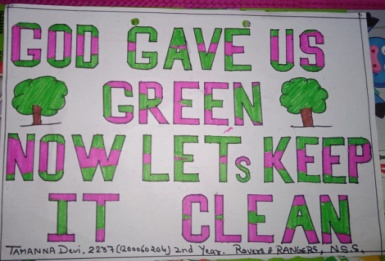 GOD GAVE US
GREEN
NOW LETs KEEP
IT CLEAN
TAMANNA Devi, 2237(1200060204) 2nd Year. ROVERS & RANGERS, N.S.S.